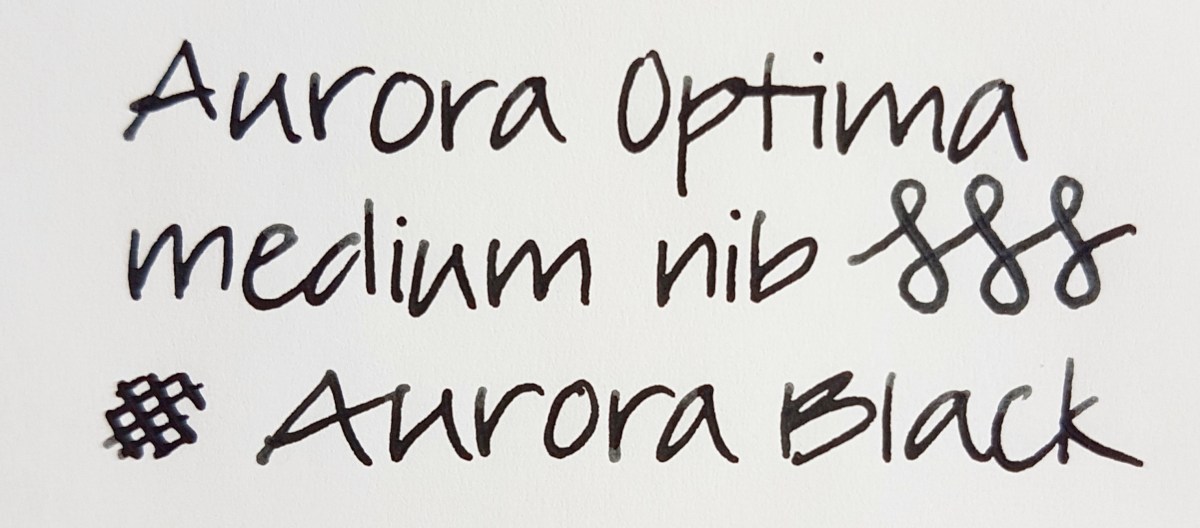 Aurora Optima
medium nib
Aurora Black